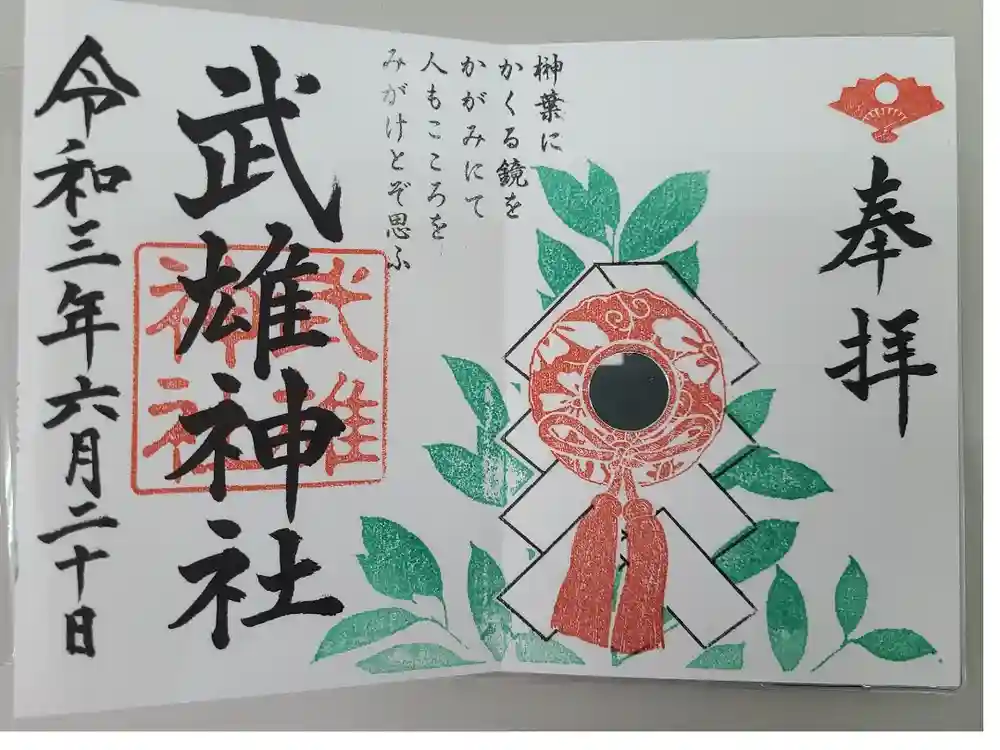 奉拝
榊葉に
かくる鏡を
かがみにて
人もこころを
みがけとぞ思ふ
武雄神社
武雄
神社
令和三年六月二十日